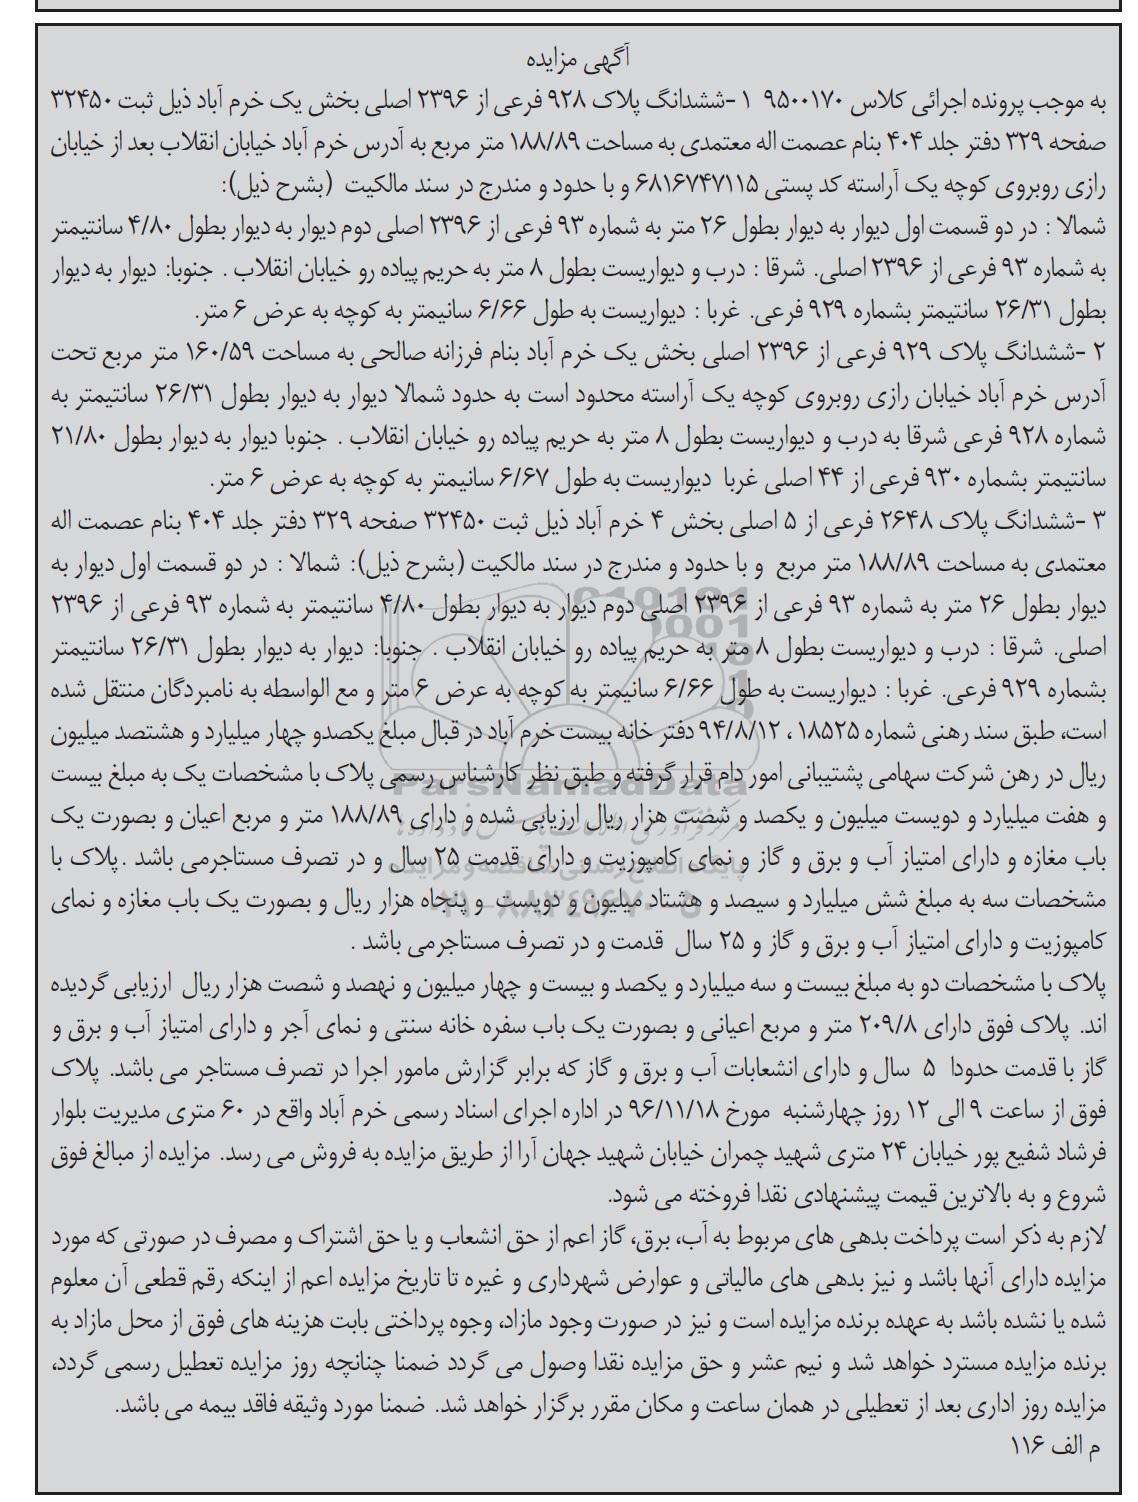 آگهی مزایده
به موجب پرونده اجرائی کلاس ۹۵۰۰۱۷۰ ۱ -ششدانگ پلاک ۹۲۸ فرعی از ۲۳۹۶ اصلی بخش یک خرم آباد ذیل ثبت ۳۲۴۵۰
صفحه ۳۲۹ دفتر جلد ۴۰۴ بنام عصمت اله معتمدی به مساحت ۱۸۸/۸۹ متر مربع به آدرس خرم آباد خیابان انقلاب بعد از خیابان
رازی روبروی کوچه یک آراسته کد پستی ۶۸۱۶۷۴۷۱۱۵ و با حدود و مندرج در سند مالکیت (بشرح ذیل):
شمالا : در دو قسمت اول دیوار به دیوار بطول ۲۶ متر به شماره ۹۳ فرعی از ۲۳۹۶ اصلی دوم دیوار به دیوار بطول ۴/۸۰ سانتیمتر
به شماره ۹۳ فرعی از ۲۳۹۶ اصلی. شرقا : درب و دیواریست بطول ۸ متر به حریم پیاده رو خیابان انقلاب . جنوبا: دیوار به دیوار
بطول ۲۶/۳۱ سانتیمتر بشماره ۹۲۹ فرعی. غربا : دیواریست به طول ۶/۶۶ سانیمتر به کوچه به عرض ۶ متر.
۲ -ششدانگ پلاک ۹۲۹ فرعی از ۲۳۹۶ اصلی بخش یک خرم آباد بنام فرزانه صالحی به مساحت ۱۶۰/۵۹ متر مربع تحت
آدرس خرم آباد خیابان رازی روبروی کوچه یک آراسته محدود است به حدود شمالا دیوار به دیوار بطول ۲۶/۳۱ سانتیمتر به
شماره ۹۲۸ فرعی شرقا به درب و دیواریست بطول ۸ متر به حریم پیاده رو خیابان انقلاب . جنوبا دیوار به دیوار بطول ۲۱/۸۰
سانتیمتر بشماره ۹۳۰ فرعی از ۴۴ اصلی غربا دیواریست به طول ۶/۶۷ سانیمتر به کوچه به عرض ۶ متر.
۳ -ششدانگ پلاک ۲۶۴۸ فرعی از ۵ اصلی بخش ۴ خرم آباد ذیل ثبت ۳۲۴۵۰ صفحه ۳۲۹ دفتر جلد ۴۰۴ بنام عصمت اله
معتمدی به مساحت ۱۸۸/۸۹ متر مربع و با حدود و مندرج در سند مالکیت (بشرح ذیل): شمالا : در دو قسمت اول دیوار به
دیوار بطول ۲۶ متر به شماره ۹۳ فرعی از ۲۳۹۶ اصلی دوم دیوار به دیوار بطول ۴/۸۰ سانتیمتر به شماره ۹۳ فرعی از ۲۳۹۶
اصلی. شرقا : درب و دیواریست بطول ۸ متر به حریم پیاده رو خیابان انقلاب . جنوبا: دیوار به دیوار بطول ۲۶/۳۱ سانتیمتر
بشماره ۹۲۹ فرعی. غربا : دیواریست به طول ۶/۶۶ سانیمتر به کوچه به عرض ۶ متر و مع الواسطه به نامبردگان منتقل شده
است، طبق سند رهنی شماره ۱۸۵۲۵ ، ۹۴/۸/۱۲ دفتر خانه بیست خرم آباد در قبال مبلغ یکصدو چهار میلیارد و هشتصد میلیون
ریال در رهن شرکت سهامی پشتیبانی امور دام قرار گرفته و طبق نظر کارشناس رسمی پلاک با مشخصات یک به مبلغ بیست
ParsNamadData
و هفت میلیارد و دویست میلیون و یکصد و شصت هزار ریال ارزیابی شده و دارای ۱۸۸/۸۹ متر و مربع اعیان و بصورت یک
باب مغازه و دارای امتیاز آب و برق و گاز و نمای کامپوزیت و دارای قدمت ۲۵ سال و در تصرف مستاجرمی باشد .پلاک با
پایگاه اطلاع رسانی مناقصه و مزایده
مشخصات سه به مبلغ شش میلیارد و سیصد و هشتاد میلیون و دویست و پنجاه هزار ریال و بصورت یک باب مغازه و نمای
۰۲۱-۸۸۳۴۹۶۷۰-۵
کامپوزیت و دارای امتیاز آب و برق و گاز و ۲۵ سال قدمت و در تصرف مستاجرمی باشد .
پلاک با مشخصات دو به مبلغ بیست و سه میلیارد و یکصد و بیست و چهار میلیون و نهصد و شصت هزار ریال ارزیابی گردیده
اند. پلاک فوق دارای ۲۰۹/۸ متر و مربع اعیانی و بصورت یک باب سفره خانه سنتی و نمای آجر و دارای امتیاز آب و برق و
گاز با قدمت حدودا ۵ سال و دارای انشعابات آب و برق و گاز که برابر گزارش مامور اجرا در تصرف مستاجر می باشد. پلاک
فوق از ساعت ۹ الی ۱۲ روز چهارشنبه مورخ ۹۶/۱۱/۱۸ در اداره اجرای اسناد رسمی خرم آباد واقع در ۶۰ متری مدیریت بلوار
فرشاد شفیع پور خیابان ۲۴ متری شهید چمران خیابان شهید جهان آرا از طریق مزایده به فروش می رسد. مزایده از مبالغ فوق
شروع و به بالاترین قیمت پیشنهادی نقدا فروخته می شود.
لازم به ذکر است پرداخت بدهی های مربوط به آب، برق، گاز اعم از حق انشعاب و یا حق اشتراک و مصرف در صورتی که مورد
مزایده دارای آنها باشد و نیز بدهی های مالیاتی و عوارض شهرداری و غیره تا تاریخ مزایده اعم از اینکه رقم قطعی آن معلوم
شده یا نشده باشد به عهده برنده مزایده است و نیز در صورت وجود مازاد، وجوه پرداختی بابت هزینه های فوق از محل مازاد به
برنده مزایده مسترد خواهد شد و نیم عشر و حق مزایده نقدا وصول می گردد ضمنا چنانچه روز مزایده تعطیل رسمی گردد،
مزایده روز اداری بعد از تعطیلی در همان ساعت و مکان مقرر برگزار خواهد شد. ضمنا مورد وثیقه فاقد بیمه می باشد.
م الف ۱۱۶